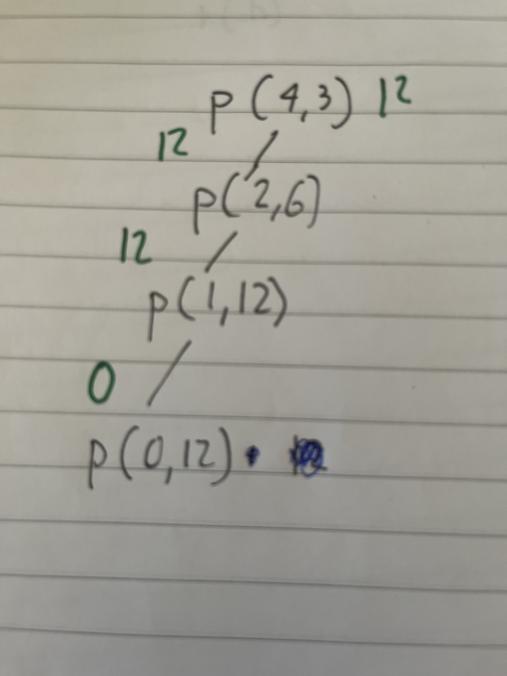 p(4,3) 12
12
p(2,6)
12
p(1,12)
0
p(0,12).